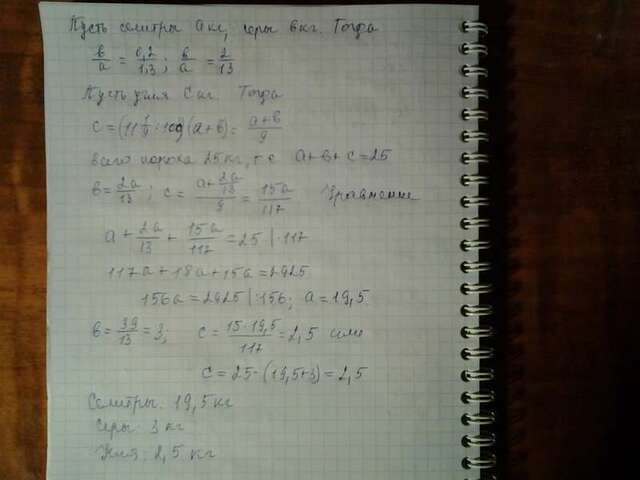 Пусть селитры а кг, серы в кг. Тогда
в/а = 0,2/1,3; в/а = 2/13
Пусть угля с кг. Тогда
с = (11 1/9 : 100)(а+в) = (а+в)/9
всего пороха 25 кг, т.е. а+в+с=25
в = 2а/13; с = (а + 2а/13)/9 = 15а/117 Уравнение
а + 2а/13 + 15а/117 = 25 | · 117
117а + 18а + 15а = 2925
156а = 2925 | : 156; а = 19,5
в = 39/13 = 3; с = 15·19,5/117 = 2,5 или
с = 25 - (19,5+3) = 2,5
Селитры: 19,5 кг
Серы: 3 кг
Угля: 2,5 кг